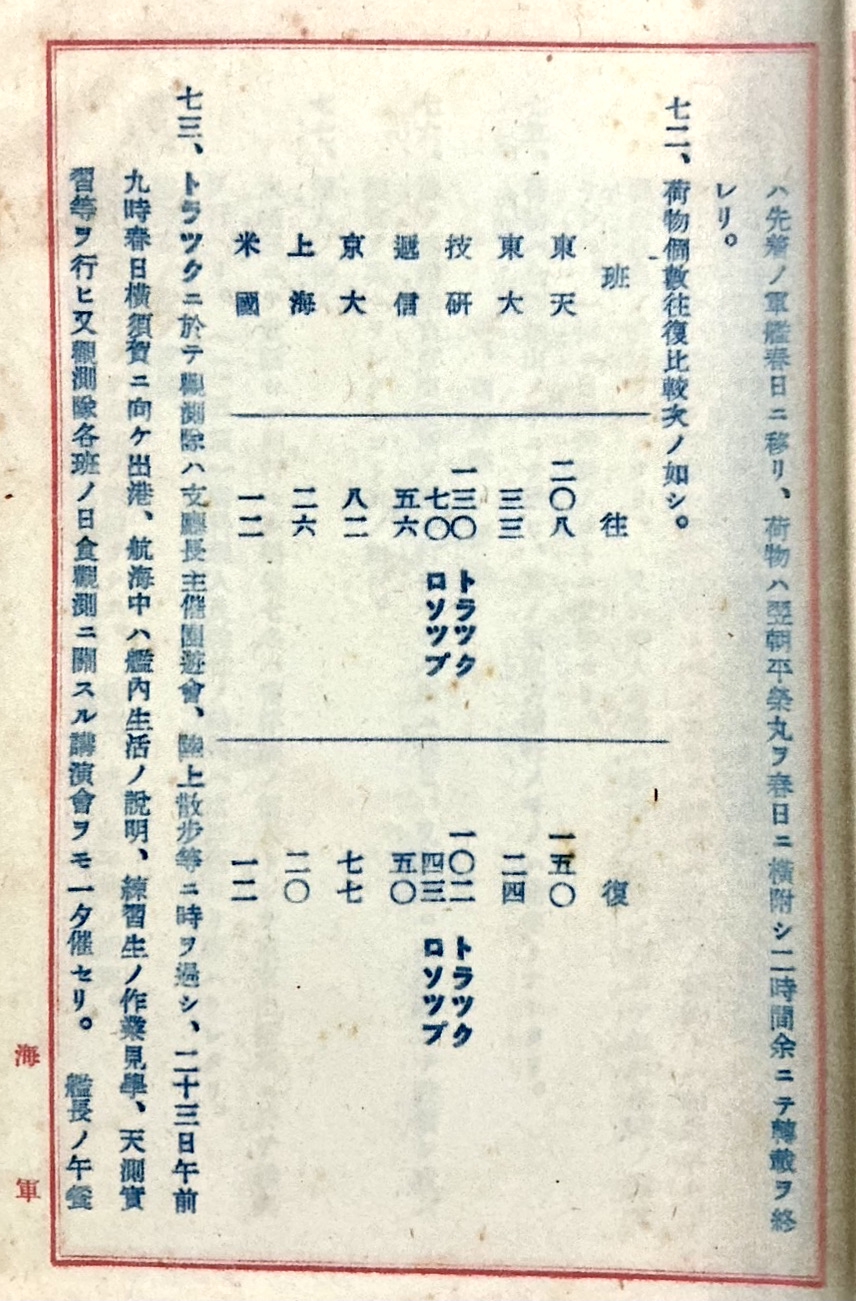 ハ先着ノ軍艦春日ニ移リ、荷物ハ翌朝平榮丸ヲ春日ニ横附シ二時間余ニテ轉載ヲ終
レリ。
七二、荷物個數往復比較次ノ如シ。
班 往 復
東天 二〇八 一五〇
東大 三三 二四
技研 一三〇 トラツク 一〇二 トラツク
七〇 ロソツプ 四三 ロソツプ
遞信 五六 五〇
京大 八二 七七
上海 二六 二〇
米國 一二 一二
七三、トラツクニ於テ觀測隊ハ支廳長主催園遊會、陸上散歩等ニ時ヲ過シ、二十三日午前
九時春日横須賀ニ向ケ出港、航海中ハ艦内生活ノ説明、練習生ノ作業見學、天測實
習等ヲ行ヒ又觀測隊各班ノ日食觀測ニ關スル講演會ヲモ一夕催セリ。 艦長ノ午餐
海軍